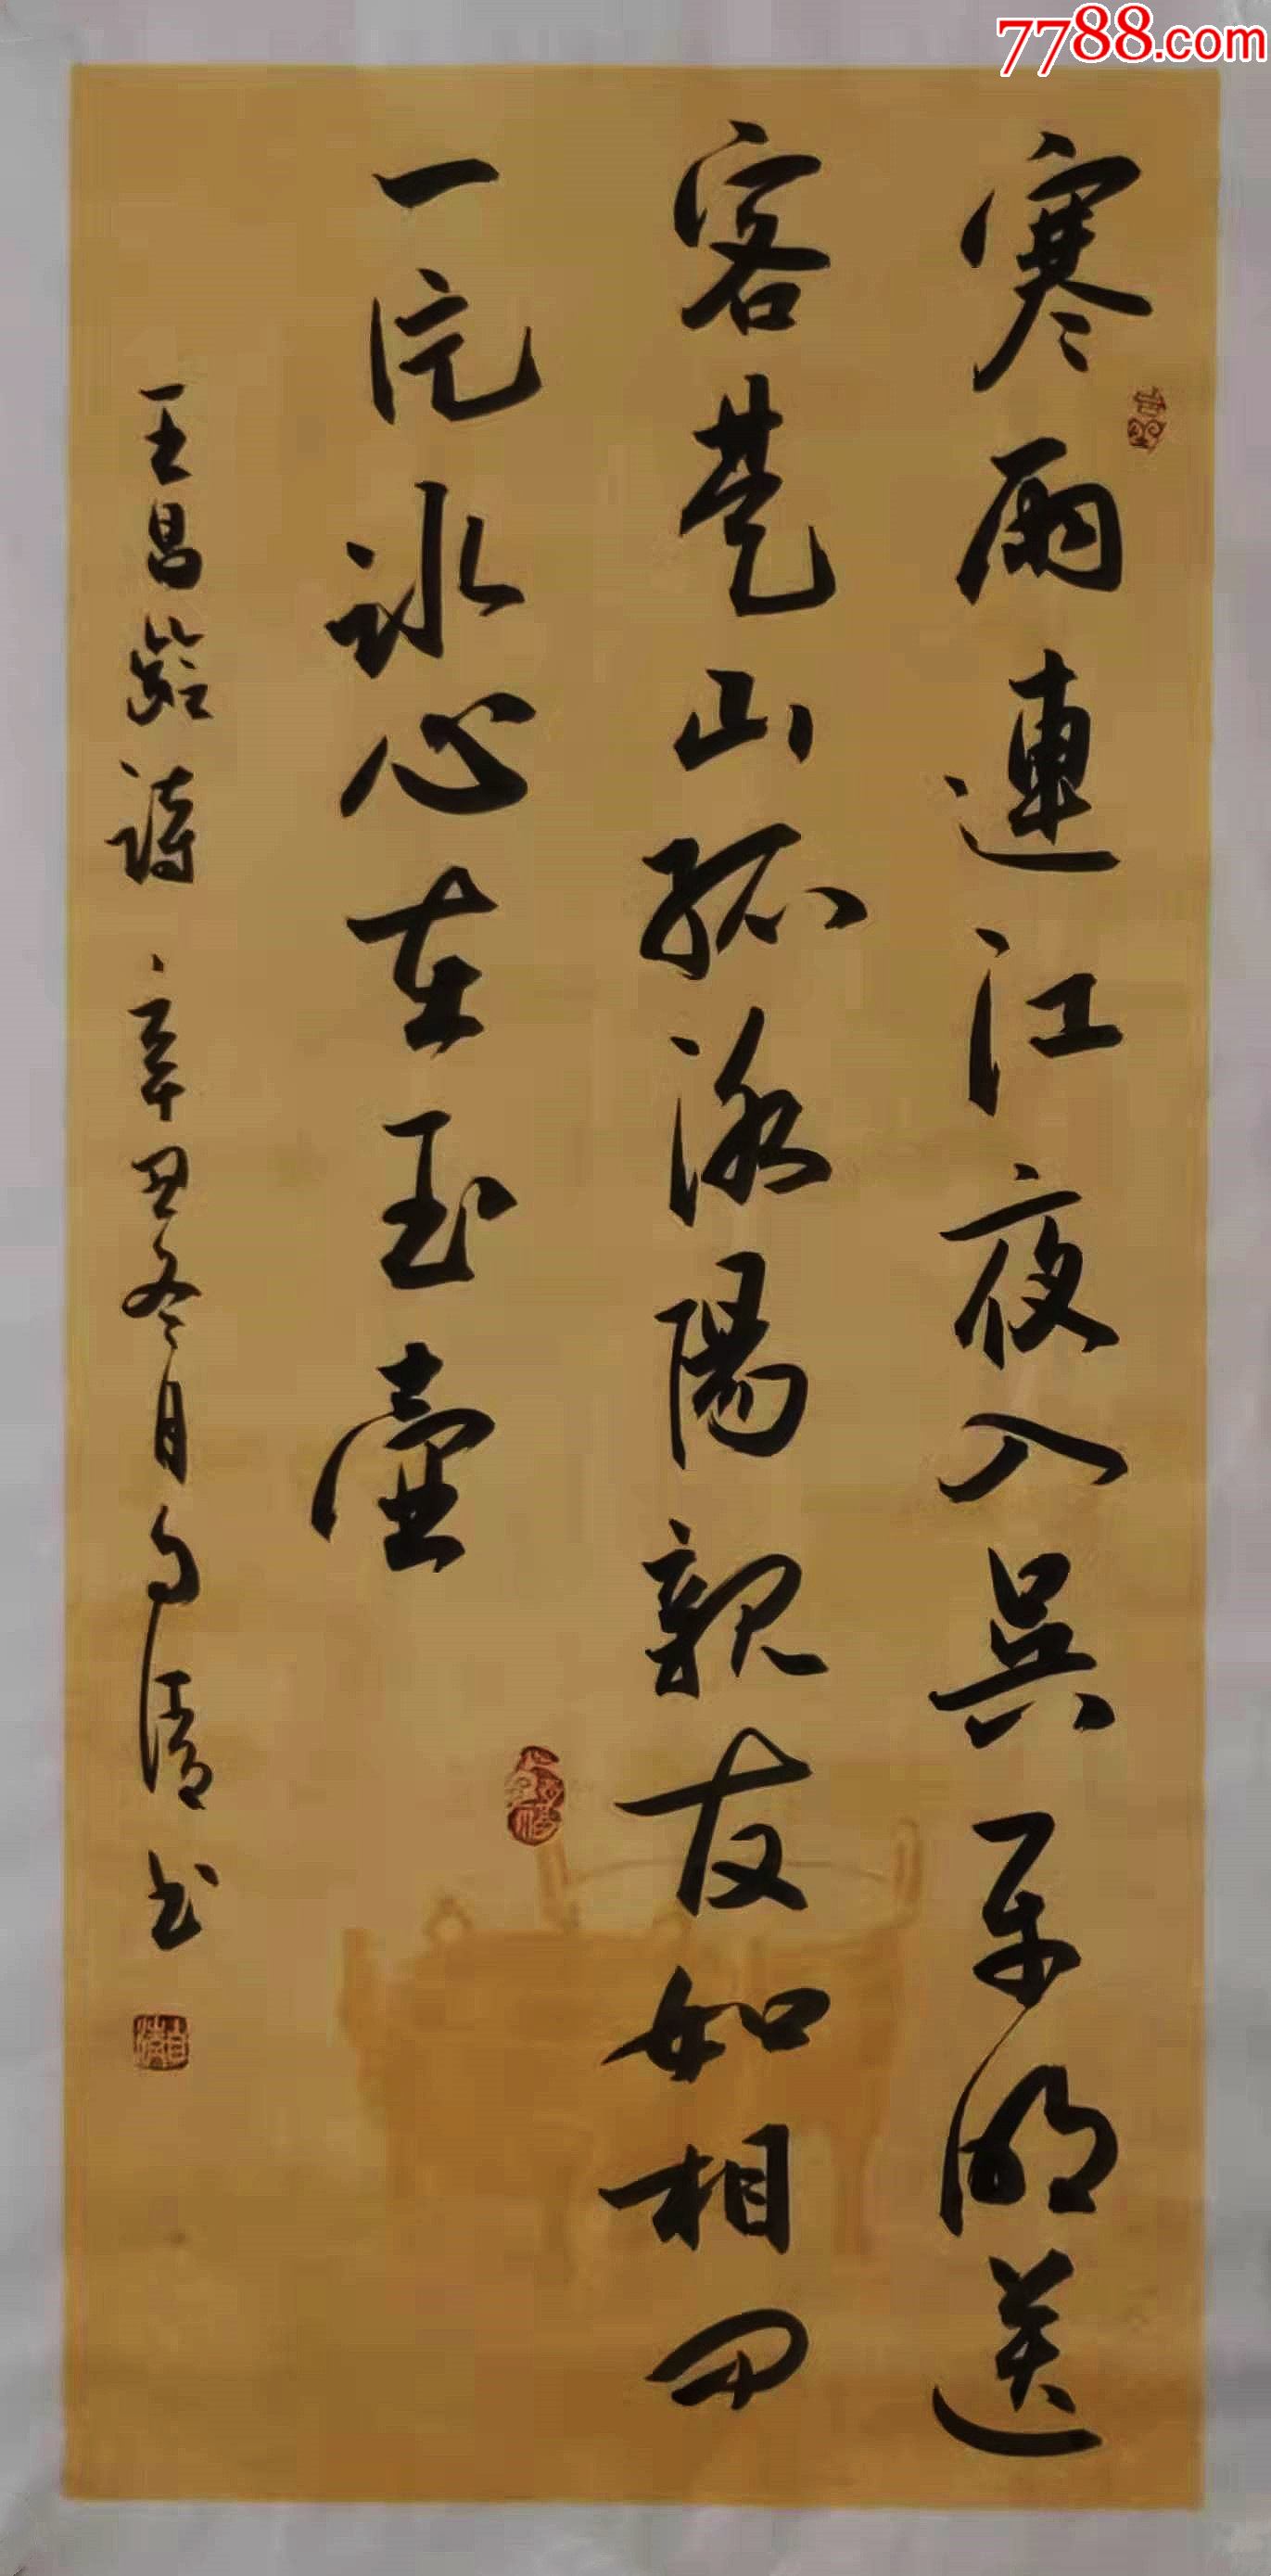 7788.com
寒雨連江夜入吳平明送
客楚山孤洛陽親友如相問
一片冰心在玉壺
王昌齡詩 辛丑冬月自清书